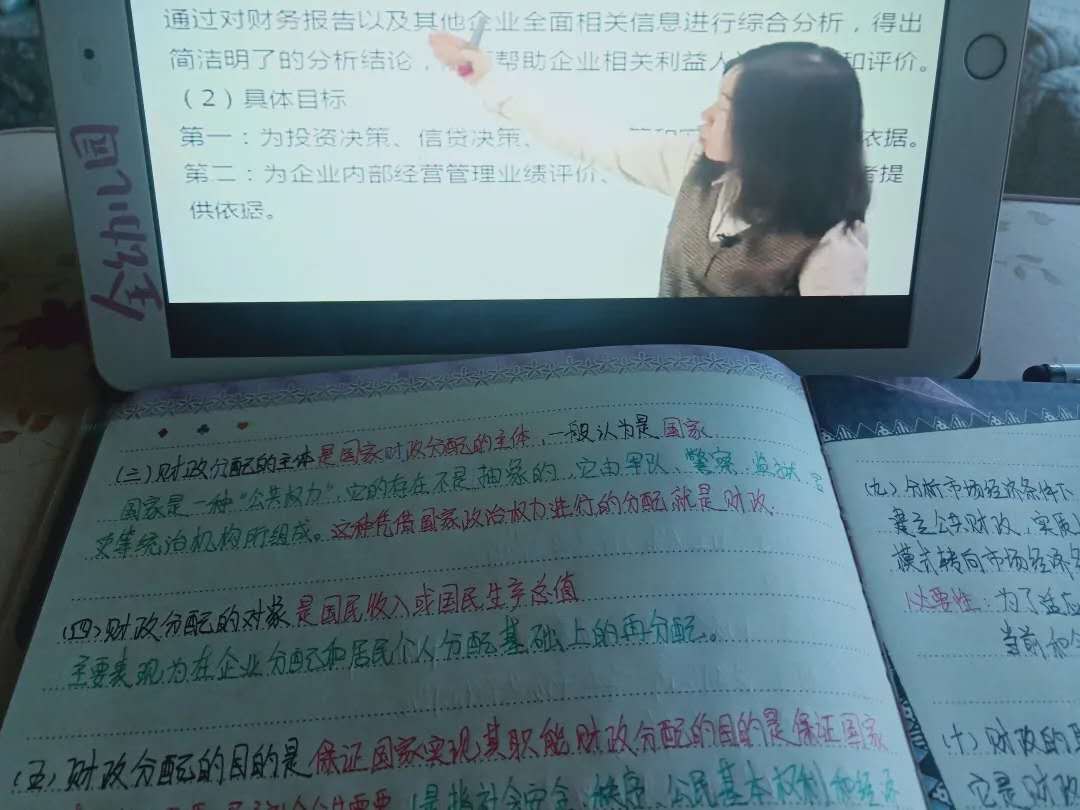 通过对财务报告以及其他企业全面相关信息进行综合分析，得出
简洁明了的分析结论，帮助企业相关利益人和评价。
（2）具体目标
第一：为投资决策、信贷决策、依据。
第二：为企业内部经营管理业绩评价、提
供依据。
(三)财政分配的主体是国家财政分配的主体，一般认为是国家
国家是一种“公共权力”，它的存在不是抽象的，它由军队、警察、监狱、官
吏等统治机构所组成。这种凭借国家政治权力进行的分配就是财政.
(四)财政分配的对象是国民收入或国民生产总值
主要表现为在企业分配和居民个人分配基础上的再分配。
(五)财政分配的目的是保证国家实现其职能财政分配的目的是保证国家
是指社会安全、秩序、公民基本权利和经济
(九)分析市场经济条件下
建立公共财政，实现
模式转向市场经济
必要性：为了适应
当前和
(十)财政的
它是财政